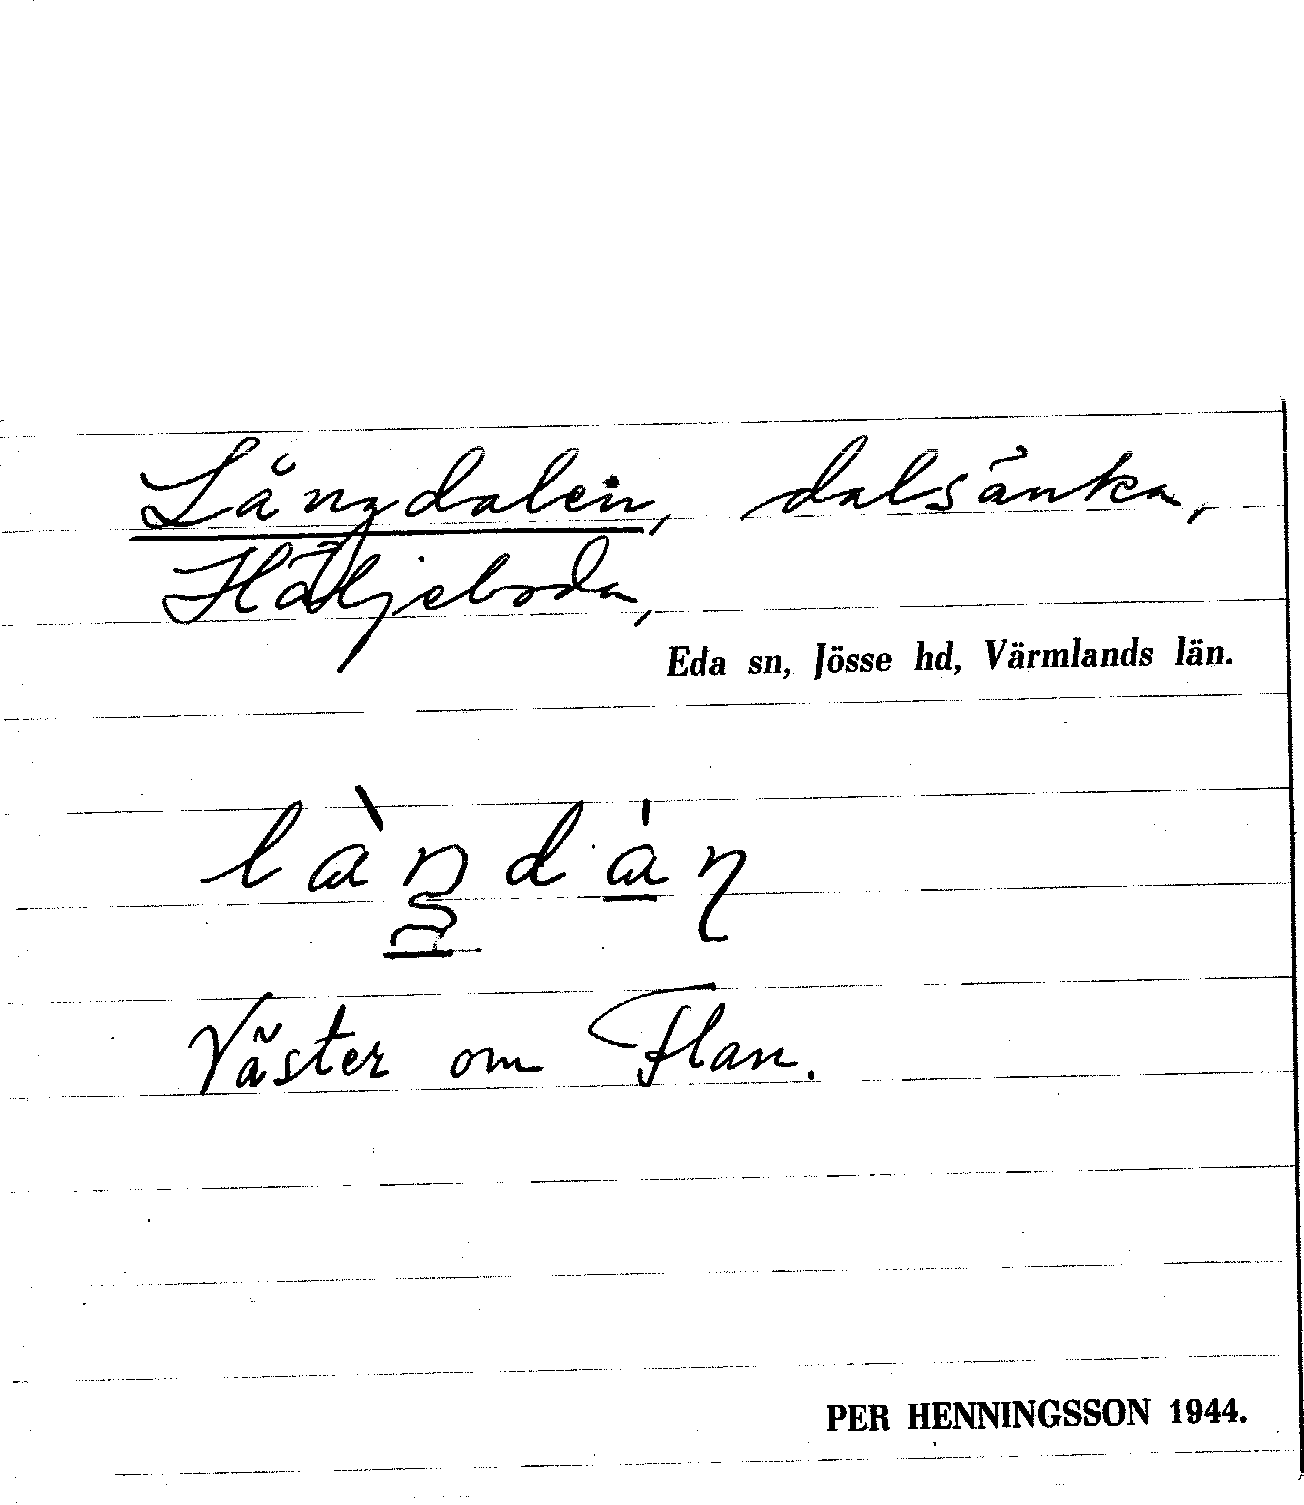 Långdalen, dalsänka,
Häljeboda,
Eda sn, Jösse hd, Värmlands län.
Väster om Flan.
PER HENNINGSSON 1944.